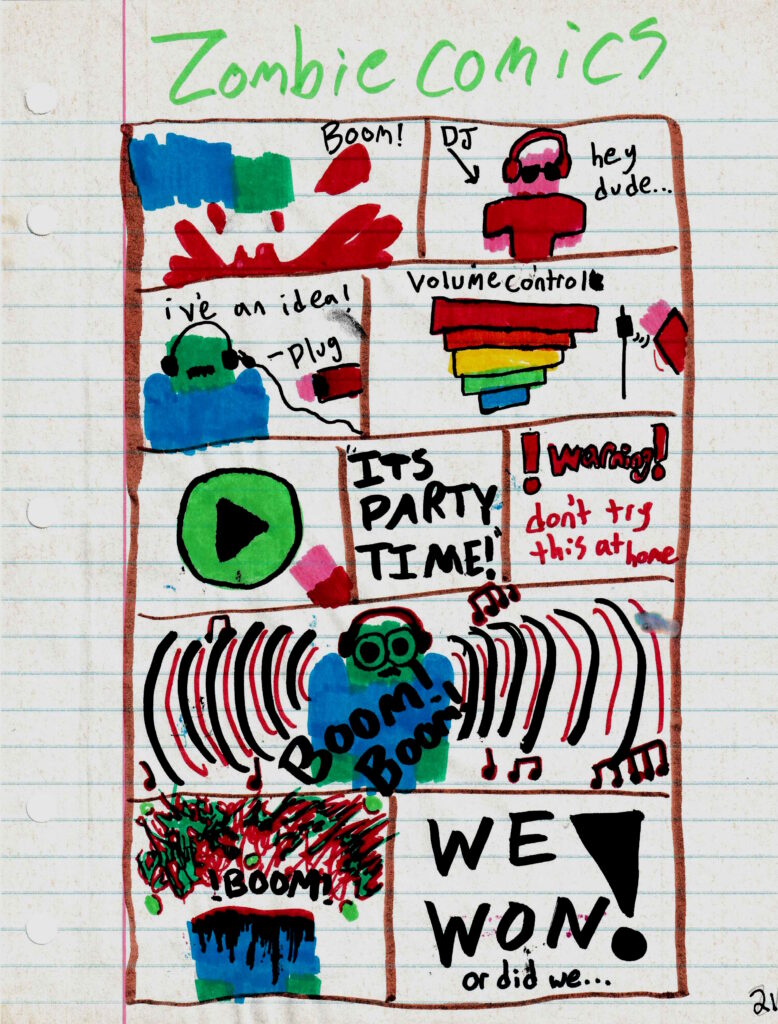 Zombie comics
Boom!
DJ
hey
dude...
i've an idea!
-plug
Volume control
"ITS
PARTY
TIME!"
! warning!
don't try
this at home
BOOM!
BOOM!
!BOOM!
WE
WON!
or did we...